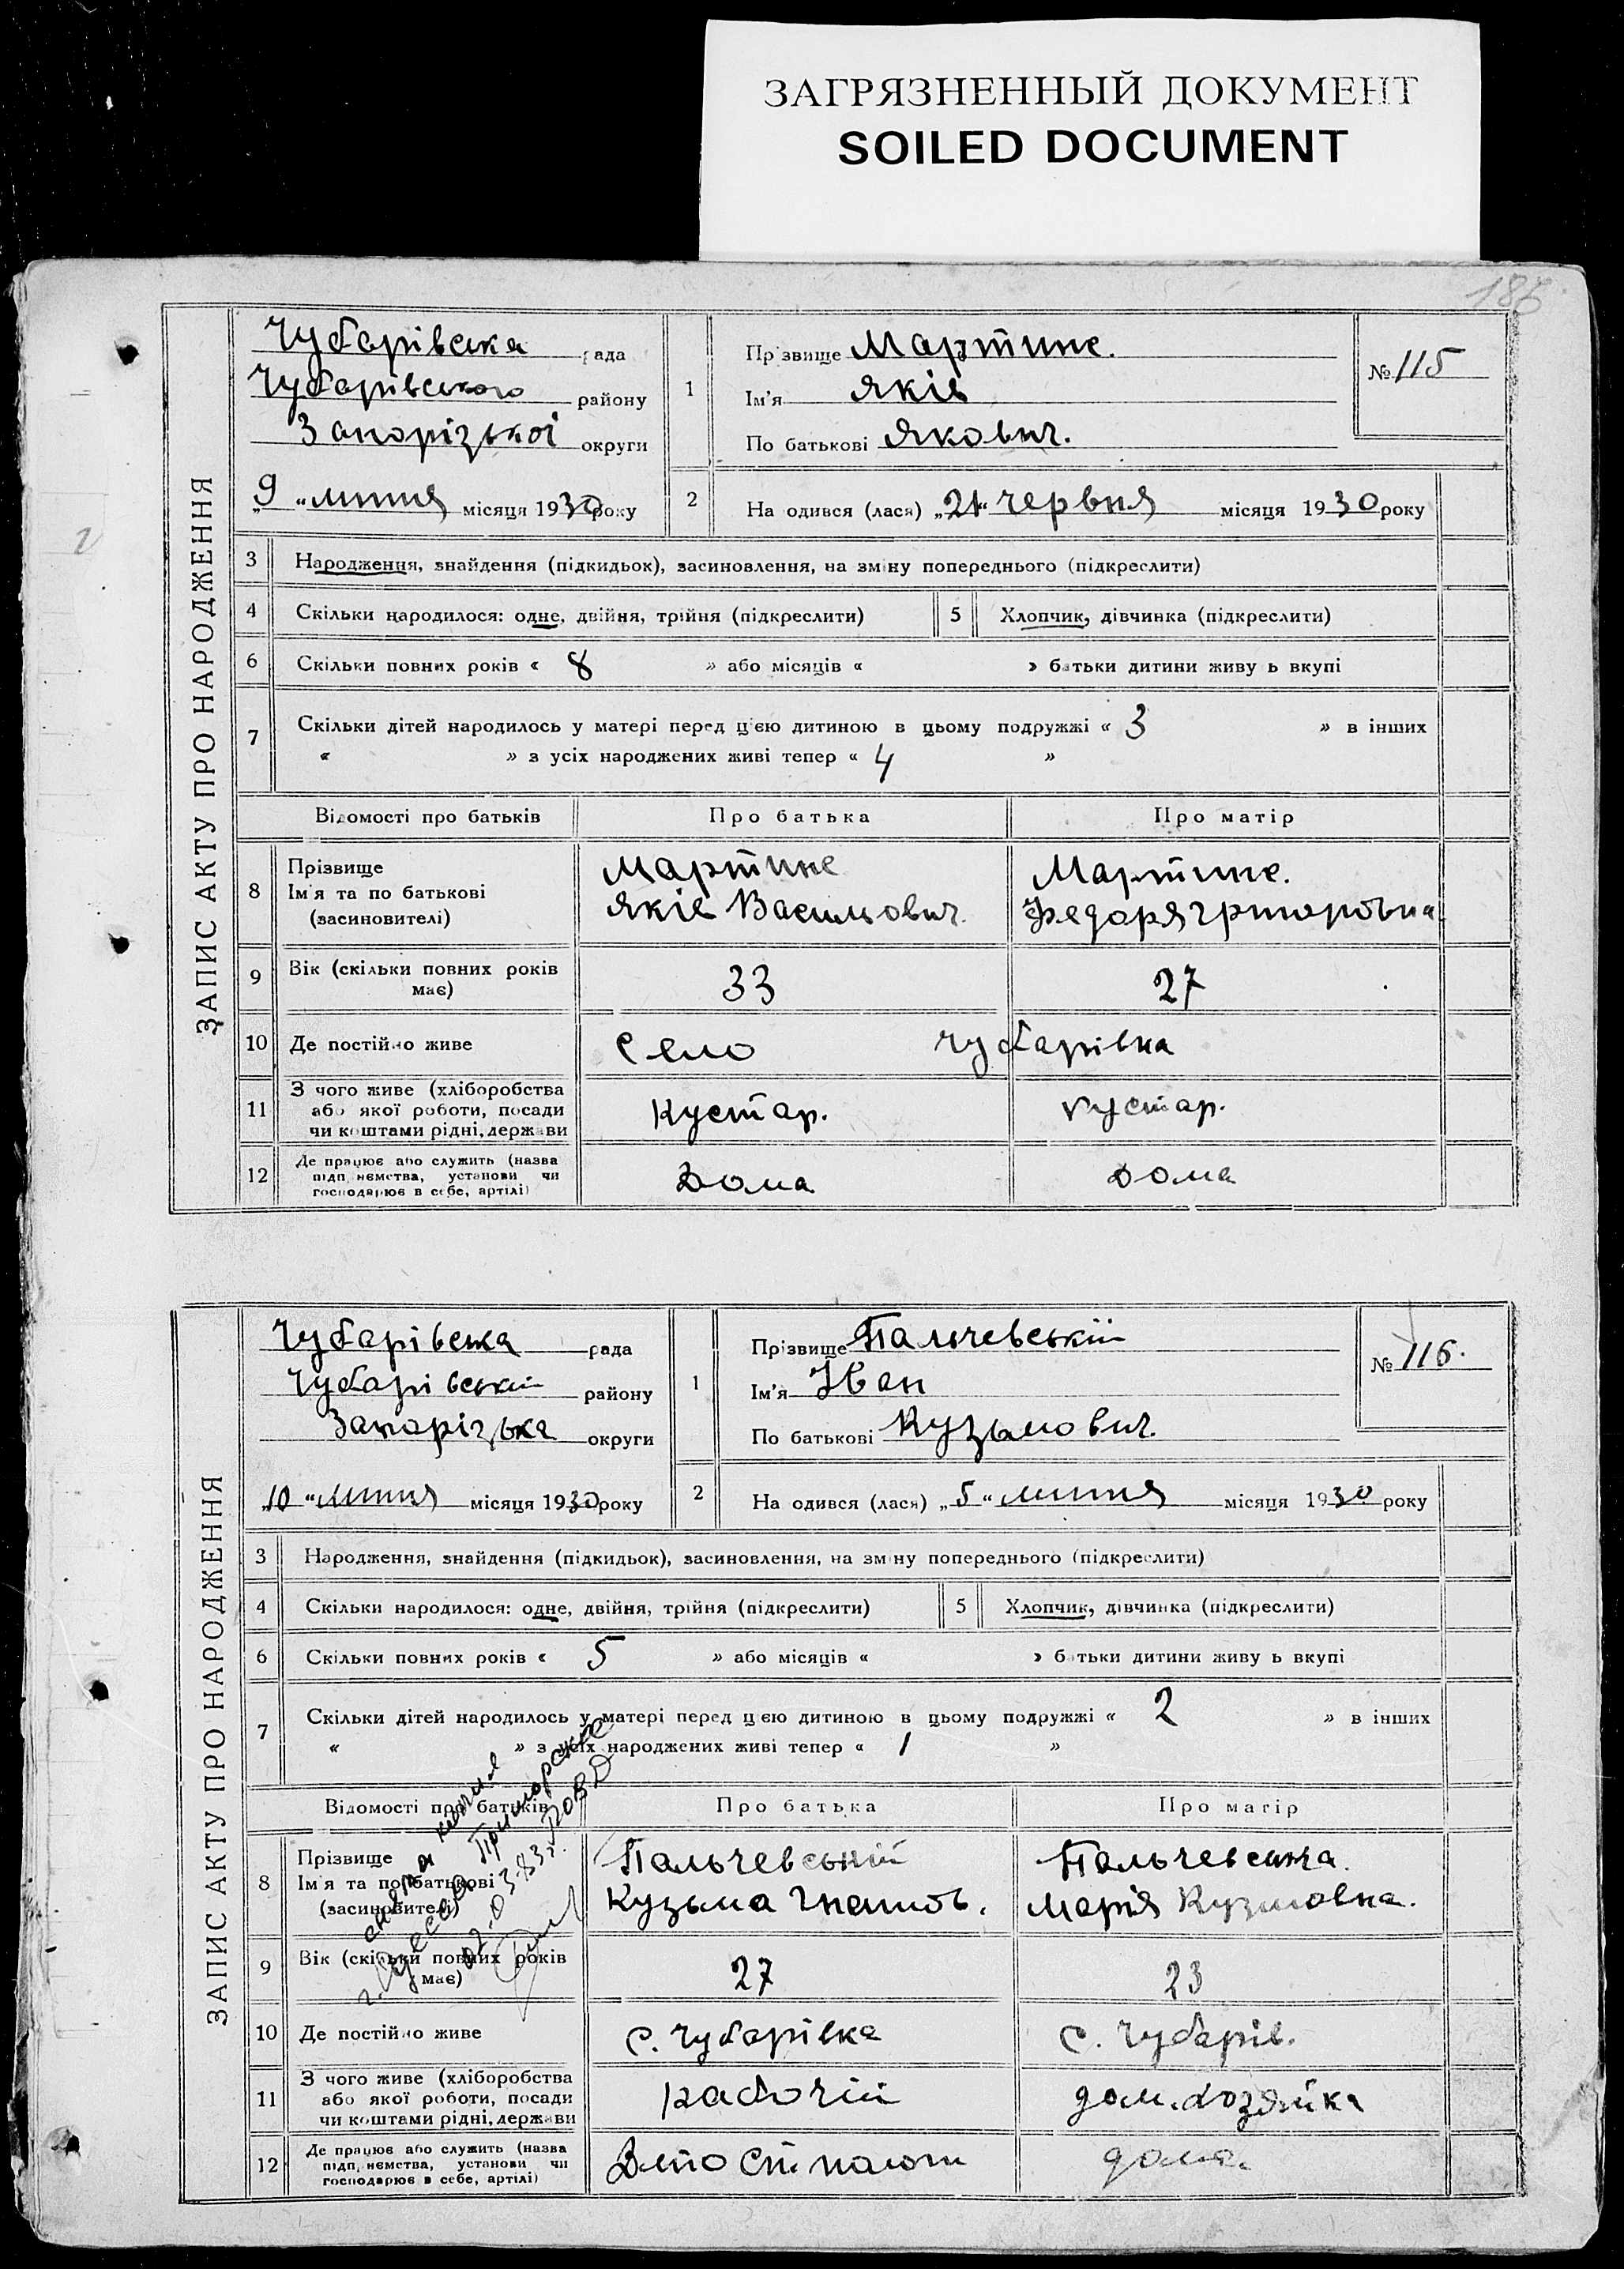 ЗАГРЯЗНЕННЫЙ ДОКУМЕНТ
SOILED DOCUMENT
186
ЗАПИС АКТУ ПРО НАРОДЖЕННЯ
Чубарівська рада
Чубарівського району
Запорізької округи
„9“ липня місяця 1930 року
1 Прізвище Мартине.
Ім'я Яків
По батькові Якович.
№ 115
2 На одився (лася) „21“ червня місяця 1930 року
3 Народження, знайдення (підкидьок), засиновлення, на зміну попереднього (підкреслити)
4 Скільки народилося: одне, двійня, трійня (підкреслити) 5 Хлопчик, дівчинка (підкреслити)
6 Скільки повних років « 8 » або місяців « » батьки дитини живу ь вкупі
7 Скільки дітей народилось у матері перед цією дитиною в цьому подружжі « 3 » в інших
« » з усіх народжених живі тепер « 4 »
Відомості про батьків Про батька Про матір
8 Прізвище Мартине Мартине.
Ім'я та по батькові Яків Васильович. Федоря Григоровна
(засиновителі)
9 Вік (скільки повних років має) 33 27
10 Де постійно живе Село Чубарівка
11 З чого живе (хліборобства Кустар. Кустар.
або якої роботи, посади
чи коштами рідні, держави
12 Де працює або служить (назва Дома Дома
підп, немства, установи чи
господарює в себе, артілі)
ЗАПИС АКТУ ПРО НАРОДЖЕННЯ
Чубарівська рада
Чубарівський району
Запорізька округи
„10“ липня місяця 1930 року
1 Прізвище Пальчевський
Ім'я Іван
По батькові Кузьмович.
№ 116.
2 На одився (лася) „5“ липня місяця 1930 року
3 Народження, знайдення (підкидьок), засиновлення, на зміну попереднього (підкреслити)
4 Скільки народилося: одне, двійня, трійня (підкреслити) 5 Хлопчик, дівчинка (підкреслити)
6 Скільки повних років « 5 » або місяців « » батьки дитини живу ь вкупі
7 Скільки дітей народилось у матері перед цією дитиною в цьому подружжі « 2 » в інших
« » з усіх народжених живі тепер « 1 »
Відомості про батьків Про батька Про матір
8 Прізвище Пальчевський Пальчевська.
Ім'я та по батькові Кузьма Гнатов. Марія Кузмовна.
(засиновителі)
Приморское
РОВД
02.03.83г.
9 Вік (скільки повних років має) 27 23
10 Де постійно живе с. Чубарівка с. Чубарів.
11 З чого живе (хліборобства рабочій дом. хозяйка
або якої роботи, посади
чи коштами рідні, держави
12 Де працює або служить (назва дома.
підп, немства, установи чи
господарює в себе, артілі)